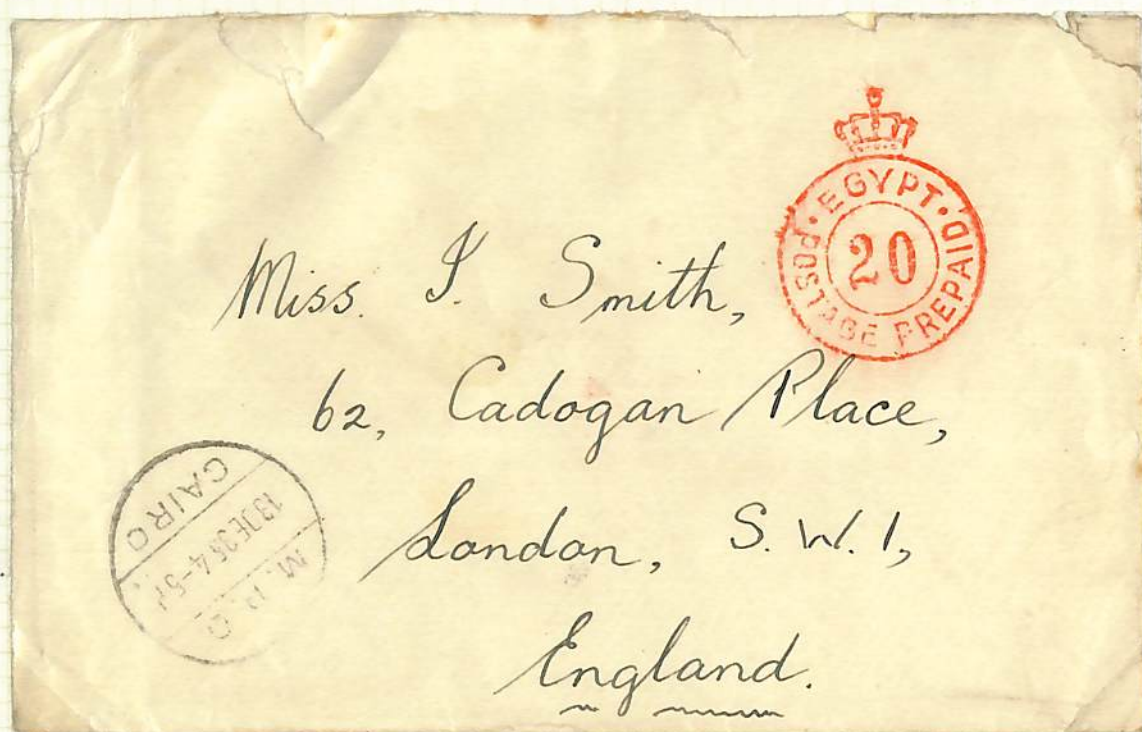 · EGYPT ·
20
POSTAGE PREPAID
Miss. I. Smith,
62, Cadogan Place,
London, S.W.1,
England.
CAIRO
M.P.O